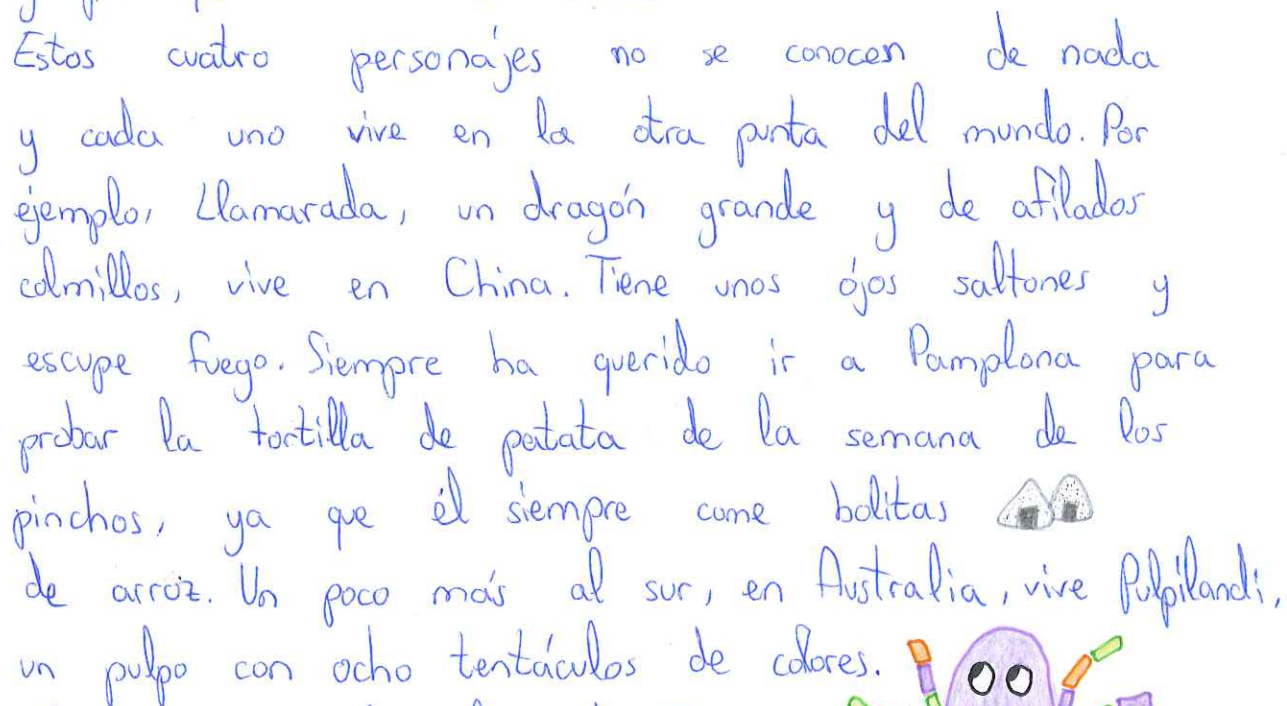 Estos cuatro personajes no se conocen de nada
y cada uno vive en la otra punta del mundo. Por
ejemplo, Llamarada, un dragón grande y de afilados
colmillos, vive en China. Tiene unos ojos saltones y
escupe fuego. Siempre ha querido ir a Pamplona para
probar la tortilla de patata de la semana de los
pinchos, ya que él siempre come bolitas
de arroz. Un poco más al sur, en Australia, vive Pulpilandi,
un pulpo con ocho tentáculos de colores.